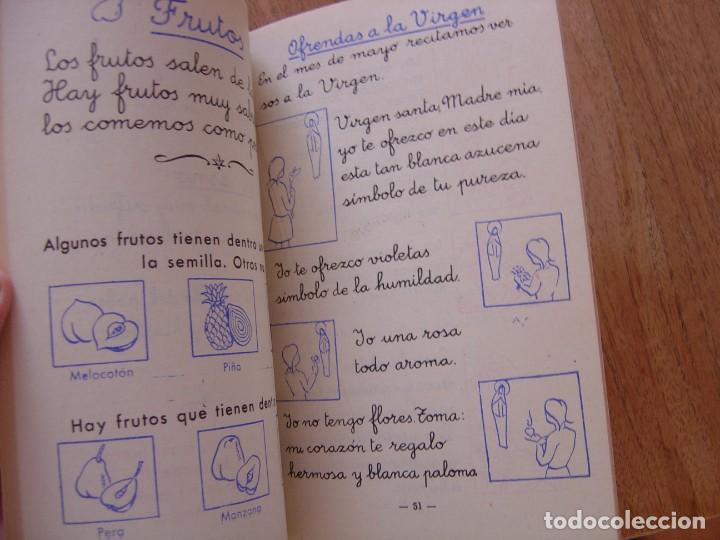 Frutos
Los frutos salen de
Hay frutos muy
los comemos como
Algunos frutos tienen dentro
la semilla. Otros
Melocotón
Piña
Hay frutos què tienen
Pera
Manzana
Ofrendas a la Virgen
En el mes de mayo recitamos ver
sos a la Virgen.
Virgen santa, Madre mia,
yo te ofrezco en este día
esta tan blanca azucena
símbolo de tu pureza.
Yo te ofrezco violetas
símbolo de la humildad.
Yo una rosa
todo aroma.
Yo no tengo flores. Toma:
mi corazón te regalo
hermosa y blanca paloma
— 51 —
todocoleccion
todocoleccion.net